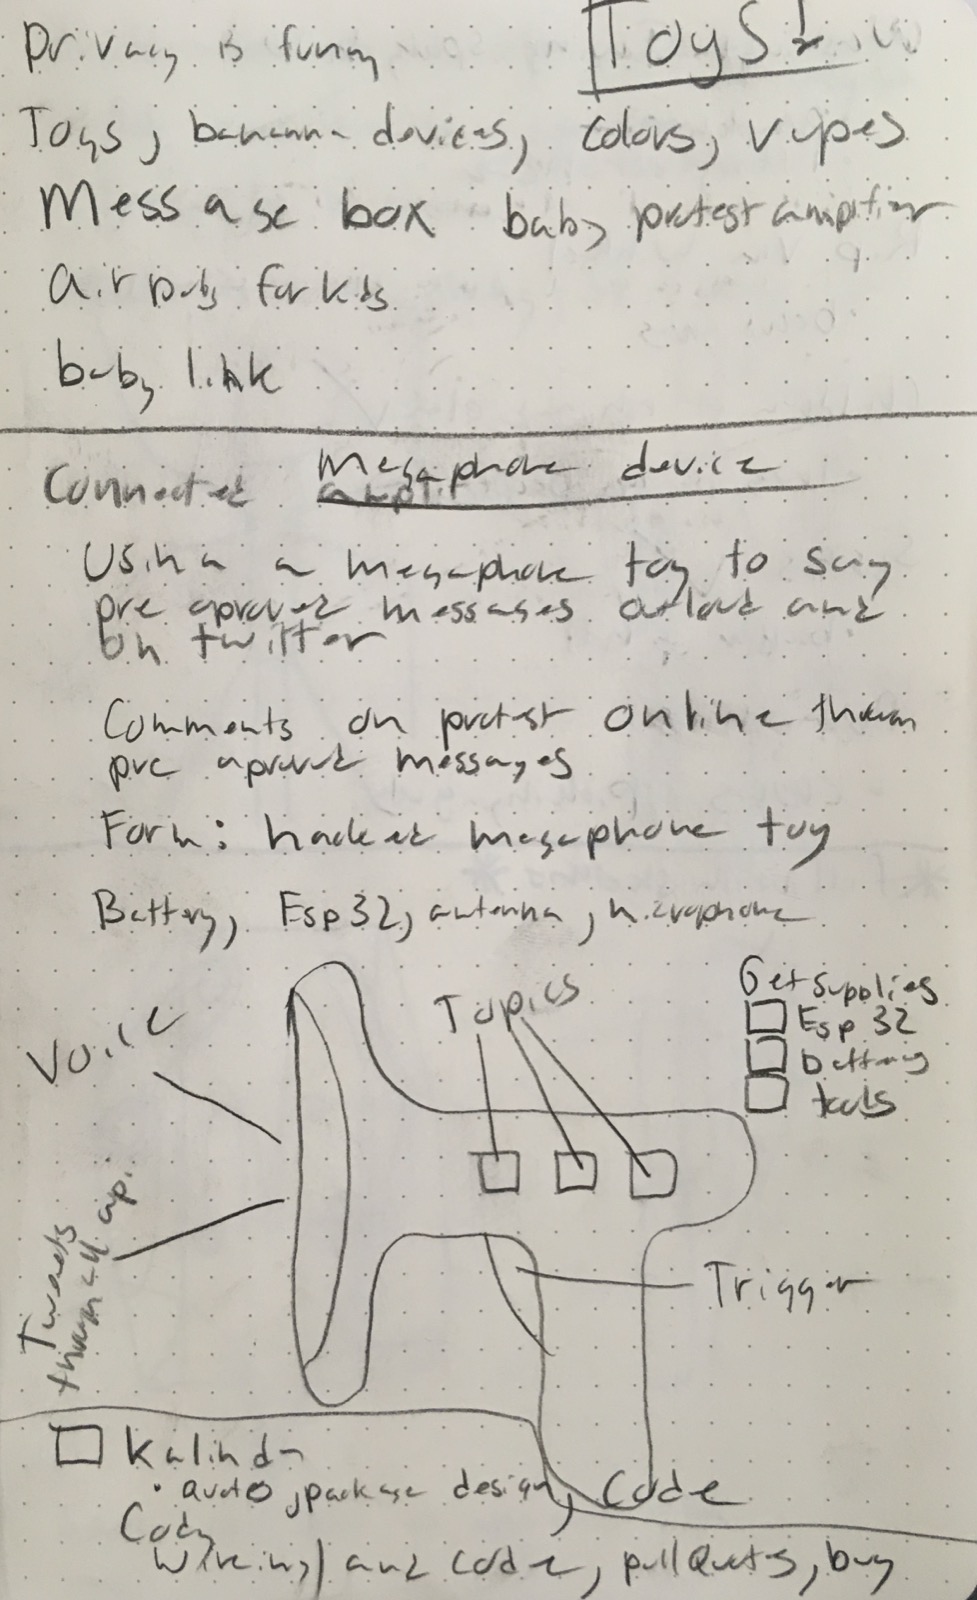 Privacy is funny
Toys!
Toys, bananna devices, colors, vapes
Message box baby protest amplifier
airpods for kids
baby link
Connected Megaphone device
Using a megaphone toy to say
pre aproved messages outloud and
on twitter
Comments on protest online through
pre aproved messages
Form: hacked megaphone toy
Battery, Esp32, antenna, microphone
Get supplies
Esp 32
battery
tools
Topics
Voice
Tweets
through api
Trigger
Kalinda
· audio, package design, Code
Cody
wireing/ and code, pull Quotes, buy